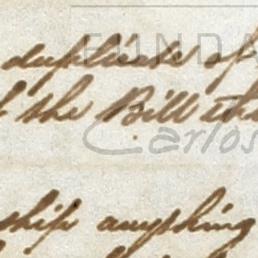 FUNDA
duplicate of
the Bill the
Carlos
ship anything